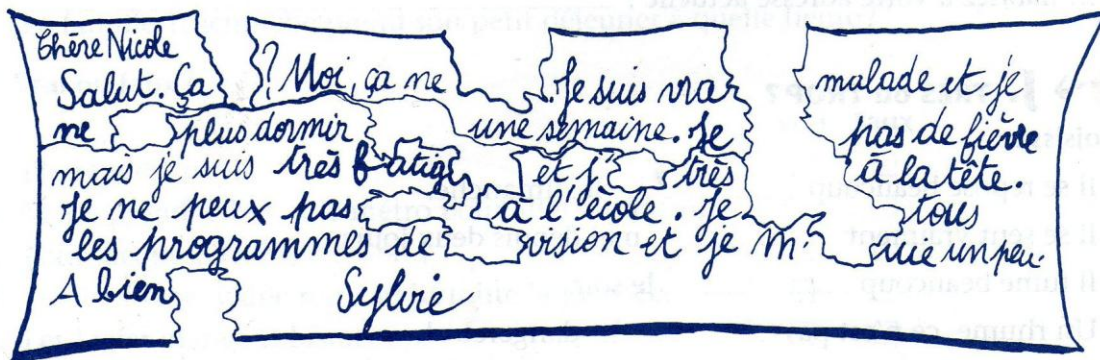 Chère Nicole
Salut. Ça ? Moi, ça ne . Je suis vrai malade et je
ne plus dormir une semaine. Je pas de fièvre
mais je suis très fatig et j' très à la tête.
Je ne peux pas à l'école. Je tous
les programmes de vision et je m' nue un peu.
A bien Sylvie